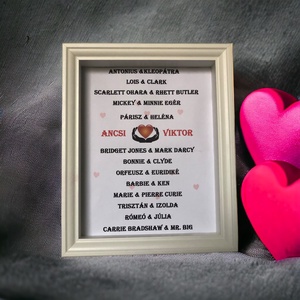 ANTONIUS &KLEOPÁTRA
LOIS & CLARK
SCARLETT OHARA & RHETT BUTLER
MICKEY & MINNIE EGÉR
PÁRISZ & HELÉNA
ANCSI VIKTOR
BRIDGET JONES & MARK DARCY
BONNIE & CLYDE
ORFEUSZ & EURIDIKÉ
BARBIE & KEN
MARIE & PIERRE CURIE
TRISZTÁN & IZOLDA
RÓMEÓ & JÚLIA
CARRIE BRADSHAW & MR. BIG